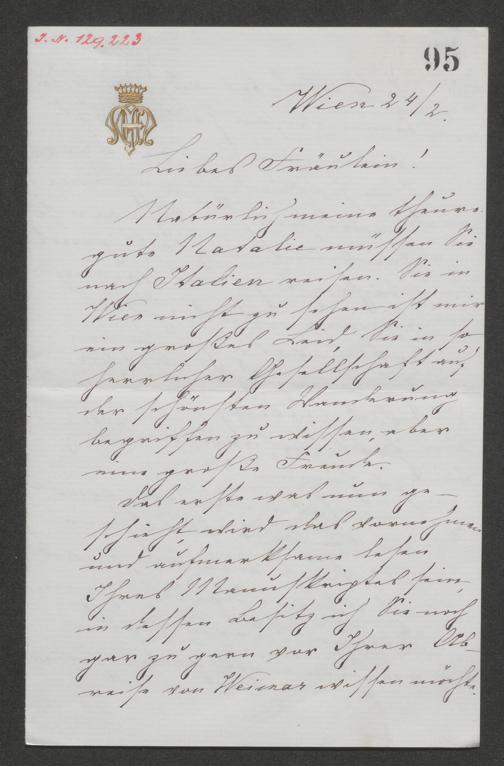 J. N. 129.223
95
Wien 24/2.
Liebes Fräulein!
Natürlich meine theure
gute Natalie müssen Sie
nach Italien reisen. Sie in
Wien nicht zu sehen ist mir
ein großes Leid, Sie in so
herrlicher Gesellschaft auf
der schönsten Wanderung
begriffen zu wissen, aber
eine große Freude.
Das erste was nun ge-
schieht wird das vornehmen
und aufmerksame lesen
Ihres Manuskriptes sein,
in dessen Besitz ich Sie noch
gar zu gern vor Ihrer Ab-
reise von Weimar wissen möchte.